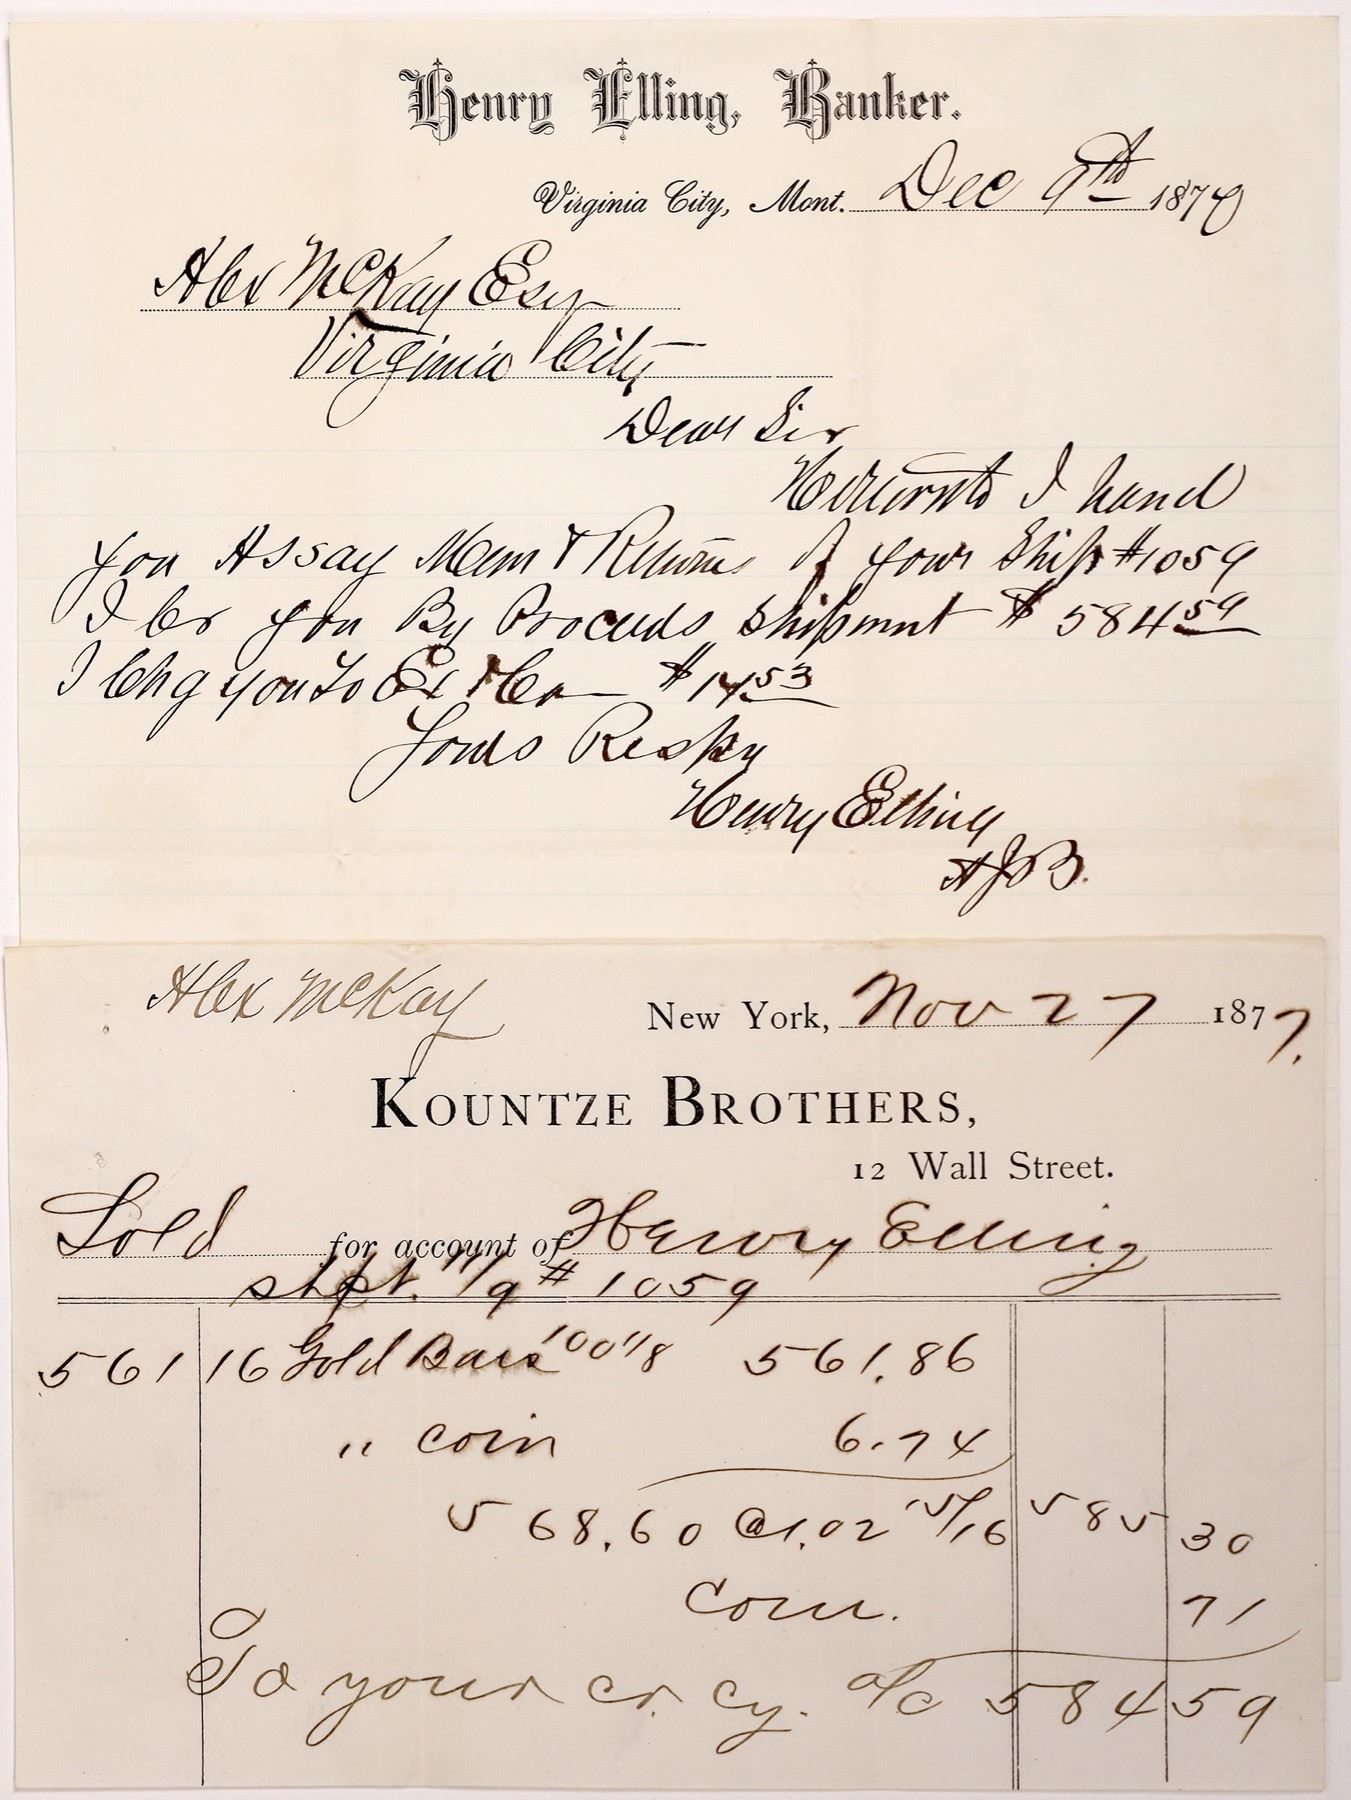 Henry Elling, Banker.
Virginia City, Mont. Dec 9th 1870
Alex McKay Esq
Virginia City
Dear Sir
Herewith I hand
you Assay Mem & Returns of your Ship #1059
I Cr you By Proceeds Shipment $ 584 59
I Chg you To Ex & Co $ 14 53
Yours Respy
Henry Elling
AJB.
Alex McKay
New York, Nov 27 1877.
Kountze Brothers,
12 Wall Street.
Sold for account of Henry Elling
shpt. 11/9 # 1059
561 16 Gold Bars 100 1/8 561.86
" coin 6.74
568.60 @ 1.02 15/16 585 30
Com. 71
To your cr. cy. a/c 584 59